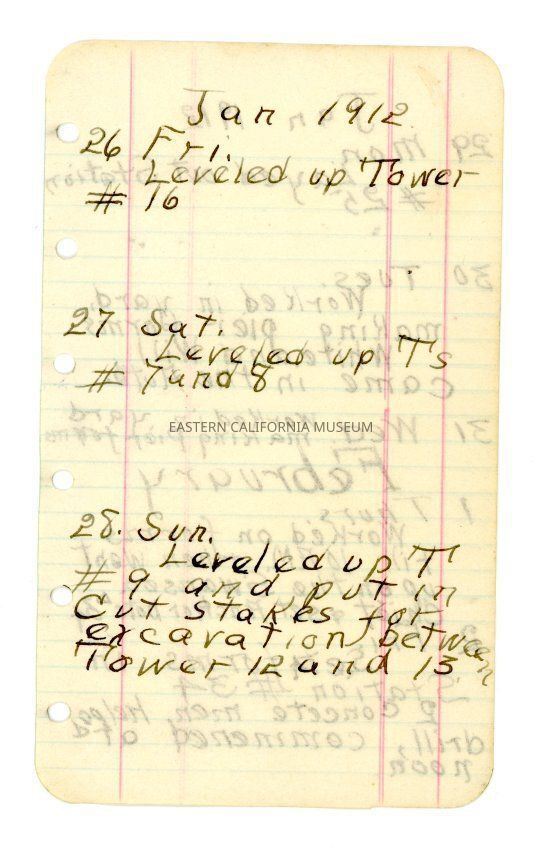 Jan 1912
26 Fri.
Leveled up Tower
# 16
27 Sat.
Leveled up Ts
# 7 and 8
EASTERN CALIFORNIA MUSEUM
28. Sun.
Leveled up T
# 9 and put in
Cut stakes for
excavation between
Tower 12 and 13